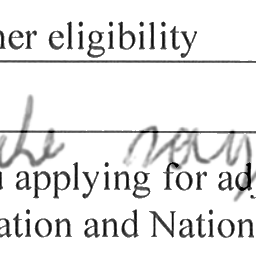 her eligibility
applying for adj
ation and Nation